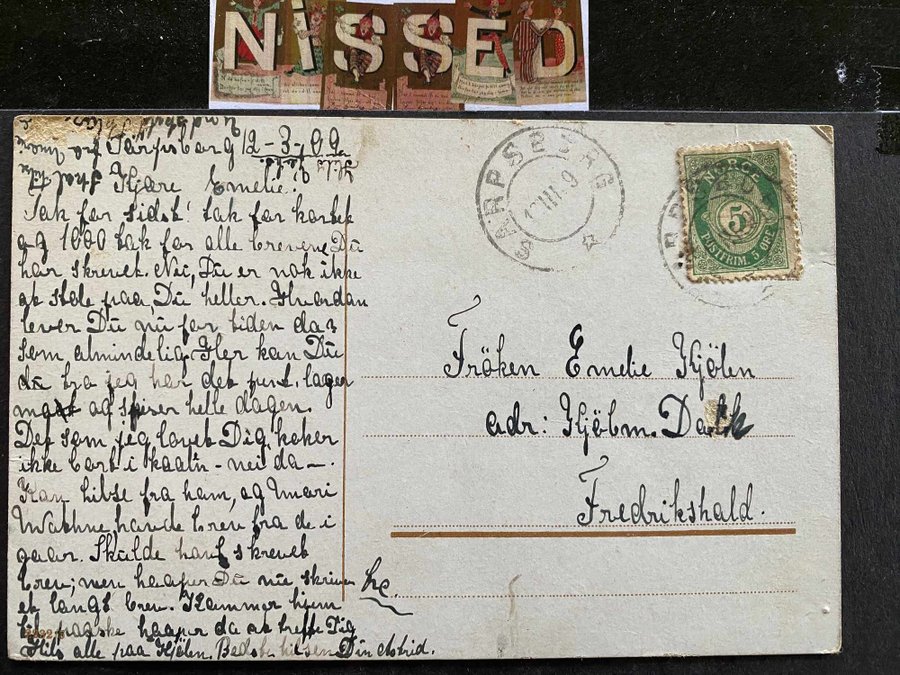 NISSED
Sarpsborg 12-3-09
Kjære Emelie!
Tak for sidst! tak for kortet
og 1000 tak for alle brevene Du
har skrevet. Nei, Du er nok ikke
at stole paa, Du heller. Hvordan
lever Du nu for tiden da?
som almindelig. Her kan Du
du tro jeg har det fint, lager
mat og spiser hele dagen.
Det som jeg lovet Dig, koker
ikke bort i kaaln - nei da -.
Kan hilse fra ham, og Mari
Wachne, havde brev fra de i
gaar. Skulde havt skrevet
brev; men haaper Du nu skriver
et langt brev. Kommer hjem
til paaske haaper da at treffe Dig
Hils alle paa Kjölen. Bedste hilsen Din Astrid.
SARPSBORG
III 9
NORGE
5
POSTFRIM. 5 ØRE
Fröken Emelie Kjölen
adr: Kjöbm. Dalk
Fredrikshald.